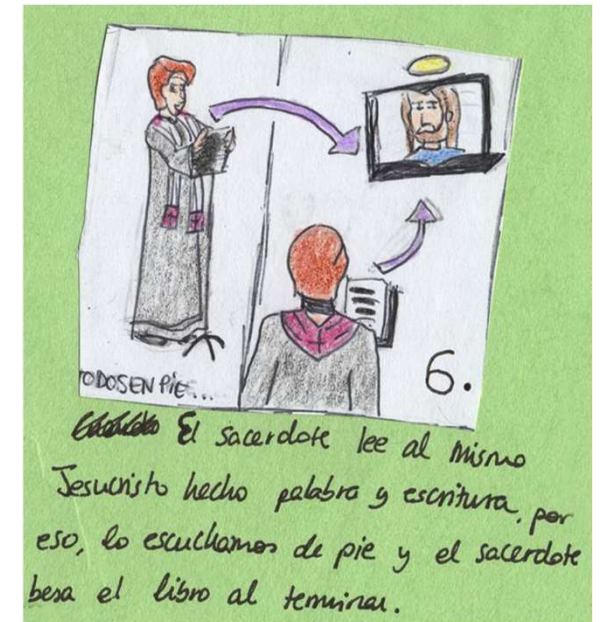 ODOS EN PIE...
6.
El sacerdote lee al mismo
Jesucristo hecho palabra y escritura, por
eso, lo escuchamos de pie y el sacerdote
besa el libro al terminar.